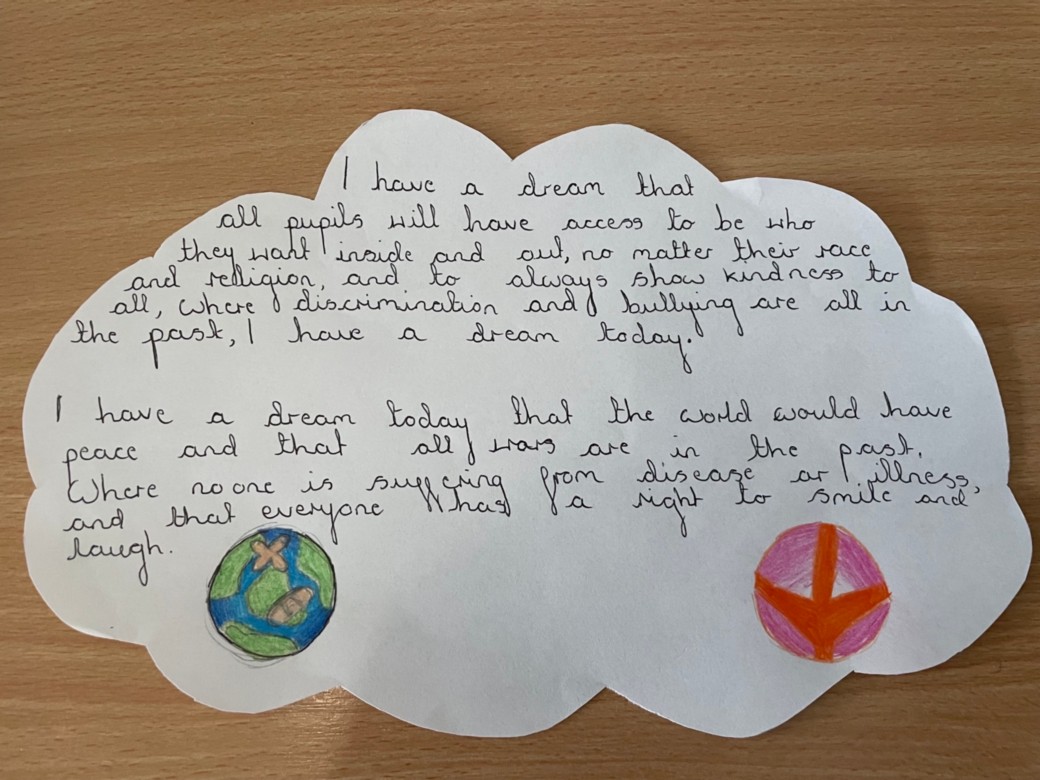 I have a dream that
all pupils will have access to be who
they want inside and out, no matter their race
and religion, and to always show kindness to
all, where discrimination and bullying are all in
the past, I have a dream today.
I have a dream today that the world would have
peace and that all wars are in the past.
Where no one is suffering from disease or illness,
and that everyone has a right to smile and
laugh.